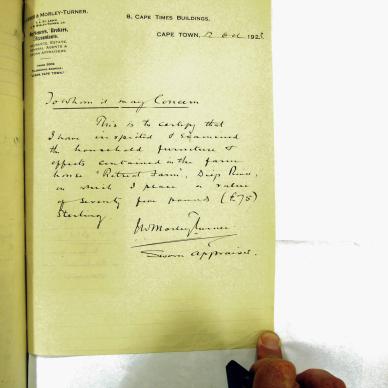 & MORLEY-TURNER.
8, CAPE TIMES BUILDINGS,
CAPE TOWN, 192
Auctioneers, Brokers,
Accountants.
INSURANCE, ESTATE,
GENERAL AGENTS &
SWORN APPRAISERS
To Whom it may Concern
This is to certify that
I have inspected & Examined
the household furniture &
effects contained in the farm
house "Retreat Farm", Diep River,
on which I place a value
of seventy five pounds (£75)
Sterling
Morley Turner
Sworn Appraiser.